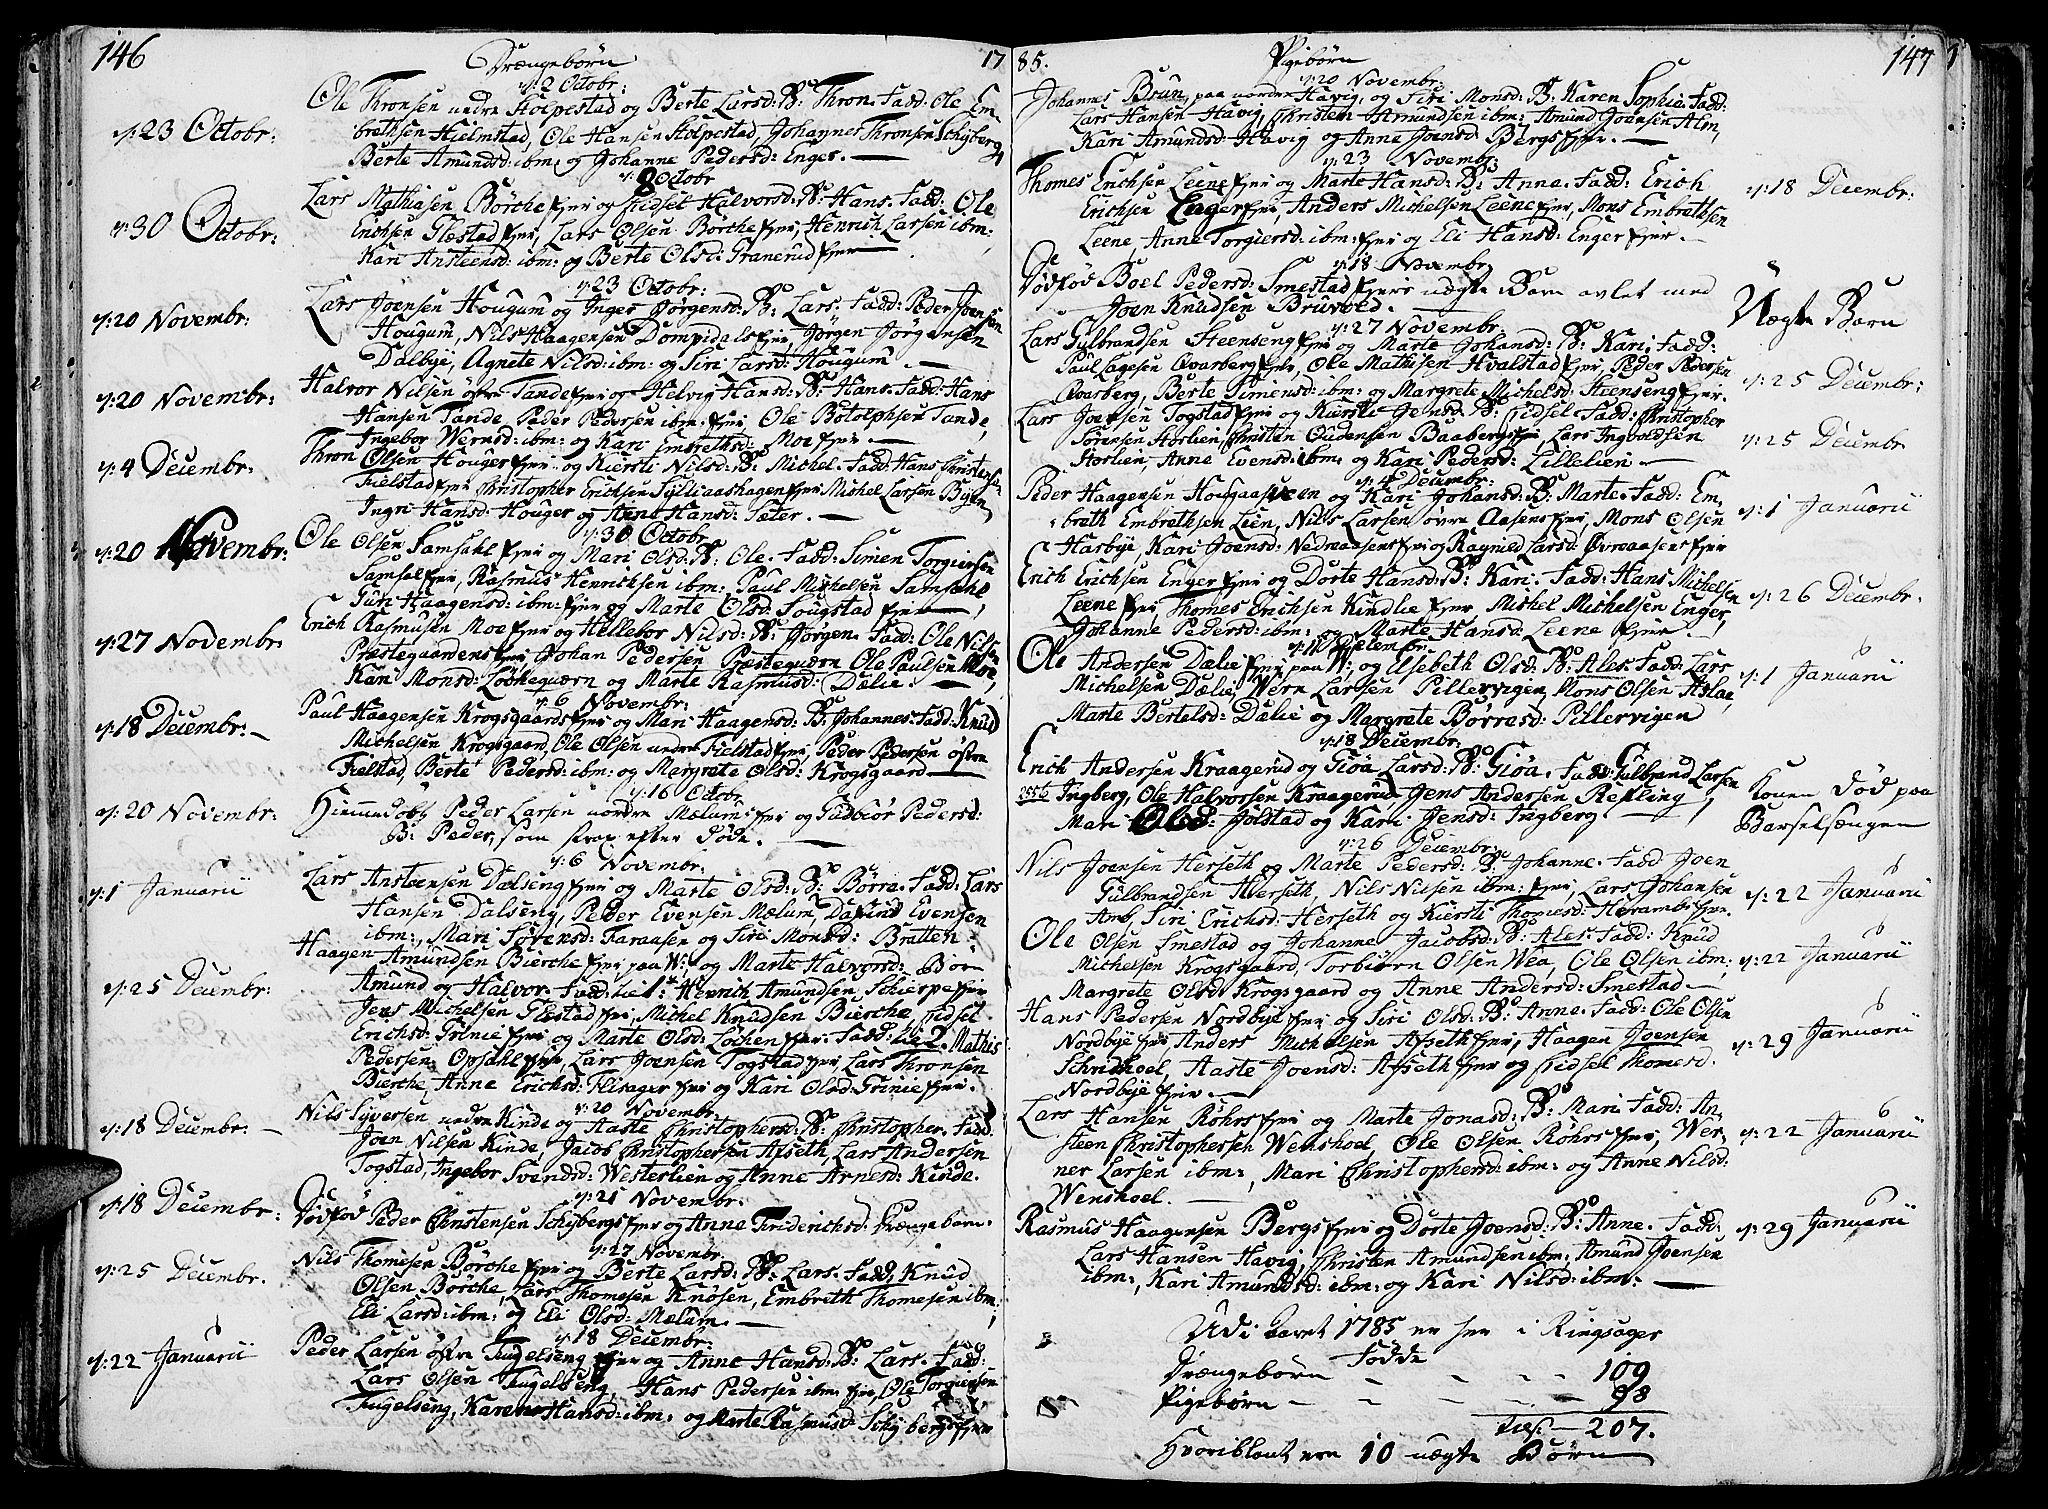 146
Drængebörn
17
d: 2 Octobr:
d: 23 Octobr:
Ole Thronsen nedre Stolpestad og Berte Larsd: B: Thron. Fadd: Ole Em-
brethsen Hielmstad, Ole Hansen Stolpestad, Johannes Thronsen Schyberg
Berte Amundsd: ibm: og Johanne Pedersd: Enger.
d: 8 Octobr
d: 30 Octobr:
Lars Mathiasen Börche Ejer og Sidsel Halvorsd: B: Hans. Fadd: Ole
Erichsen Glæstad Ejer, Lars Olsen Borche Ejer, Henrich Larsen ibm:
Kari Ansteensd: ibm: og Berte Olsd: Granerud Ejer
d: 23 Octobr:
d: 20 Novembr:
Lars Joensen Hougum og Inger Jörgensd: B: Lars. Fadd: Peder Joensen
Hougum, Nils Haagensen Dompidals Ejer, Jörgen Jörgensen
Dalbye, Agnete Nilsd: ibm: og Siri Larsd: Hougum.
d: 20 Novembr:
Halvor Nilsen östre Tande Ejer og Helvig Hansd: B: Hans. Fadd: Hans
Hansen Tande, Peder Pedersen ibm. Ejer, Ole Botolphsen Tande,
Ingebor Wernsd: ibm: og Kari Embrethsd: Moe Ejer.
d: 4 Decembr:
Thron Olsen Houger Ejer og Kiersti Nilsd: B: Michel. Fadd: Hans Christensen
Fielstad Ejer, Christopher Erichsen Sylliaashagen Ejer, Michel Larsen Byen,
Ingri Hansd: Houger og Anne Hansd: Sæter.
d: 30 Octobr
d: 20 Novembr:
Ole Olsen Samsahl Ejer og Mari Olsd: B: Ole. Fadd: Simen Torgiersen
Samsal Ejer, Rasmus Henrichsen ibm: Paul Michelsen Samsahl
Guri Haagensd: ibm: Ejer og Marte Olsd: Sougstad Ejer
d: 27 Novembr:
Erich Rasmusen Moe Ejer og Hellebor Nilsd: B: Jörgen. Fadd: Ole Nilsen
Præstegaardens Ejer, Johan Pedersen Præsteqvern Ole Paulsen Moe,
Kari Monsd: Loukeqværn og Marte Rasmusd: Dælie.
d: 6 Novembr:
d: 18 Decembr:
Paul Haagensen Krogsgaards Ejer og Mari Haagensd: B: Johannes: Fadd: Knud
Michelsen Krogsgaard, Ole Olsen nedre Fielstad Ejer, Peder Pedersen östre
Fielstad, Berte Pedersd: ibm: og Margrete Olsd: Krogsgaard
d: 16 Octobr
d: 20 Novembr:
Hiemmedöbt Peder Larsen nordre Mælum: Ejer og Gudbiör Pedersd:
B: Peder, som strax efter döde.
d: 6 Novembr:
d: 1 Januarii
Lars Ansteensen Dælseng Ejer og Marte Olsd: B: Börre. Fadd: Lars
Hansen Dalseng, Peder Evensen Mælum, Dafind Evensen
ibm:, Mari Sörensd: Faraasen og Siri Monsd: Bratten:
d: 25 Decembr:
Haagen Amundsen Bierche Ejer paa W: og Marte Halvorsd: Bor
Amund og Halvor. Fadd: til 1: Henrich Amundsen Schierpe Ejer
Jens Michelsen Glæstad Ejer, Michel Knudsen Bierche, Sidsel
Erichsd: Grinie Ejer og Marte Olsd: Lochen Ejer: Fadd: til 2. Mathis
Pedersen Opsahl Ejer, Lars Joensen Togstad Ejer, Lars Thronsen
Bierche, Anne Erichsd: Flisager Ejer og Kari Olsd: Grinie Ejer.
d: 20 Novembr:
d: 18 Decembr:
Nils Syversen nedre Kinde og Aaste Christophersd: B: Christopher. Fadd:
Joen Nilsen Kinde, Jacob Christophersen Afseth, Lars Andersen
Togstad, Ingebor Svendsd: Westerlien og Anne Arnesd: Kinde.
d: 21 Novembr:
d: 18 Decembr:
Dödföd Peder Christensen Schybergs Ejer og Anne Friderichsd: Drængebarn.
d: 27 Novembr.
d: 25 Decembr.
Nils Thomesen Börche Ejer og Berte Larsd: B: Lars. Fadd, Knud
Olsen Börche, Lars Thomesen Knosen, Embreth Thomesen ibm;
Eli Larsd: ibm: og Eli Olsd: Mælum.
d: 18 Decembr:
d: 22 Januarii
Peder Larsen östre Fugelseng Ejer og Anne Hansd: B: Lars. Fadd:
Lars Olsen Fugelseng, Hans Pedersen ibm: Ejer, Ole Torgiersen
Fugelseng, Karen Hansd: ibm: og Marte Rasmusd: Schybergs Ejer
85.
Pigebörn
147
d: 20 Novembr:
Johannes Brun, paa nordre Havig, og Siri Monsd: B: Karen Sophia. Fadd:
Lars Hansen Havig, Christen Amundsen ibm: Amund Joensen Alm,
Kari Amundsd: Havig og Anne Joensd: Bergs Ejer.
d: 23 Novembr:
Thomes Erichsen Leene Ejer og Marte Hansd: B: Anne. Fadd: Erich
d: 18 Decembr:
Erichsen Enger Ejer, Anders Michelsen Leene Ejer, Mons Embrethsen
Leene, Anne Torgiersd: ibm: Ejer og Eli Hansd: Enger Ejer.
d: 18 Novembr
Dödföd Boel Pedersd: Smestad Ejers uægte Barn avlet med
Joen Knudsen Bruvold.
Uægte Barn
d: 27 Novembr:
Lars Gulbrandsen Steenseng Ejer og Marte Johansd: B: Kari. Fadd:
Paul Lagesen Qvarberg Ejer, Ole Mathisen Hvalstad Ejer, Peder Pedersen
d: 25 Decembr:
Qvarberg, Berte Simensd: ibm: og Margrete Michelsd: Steenseng Ejer.
Lars Joensen Togstad Ejer og Kiersti Jensd: B: Sidsel. Fadd: Christopher
Sörensen Storlien, Christen Gudensen Baabergs Ejer, Lars Ingvoldsen
d: 25 Decembr
Storlien, Anne Evensd: ibm: og Kari Pedersd: Lillelien
d: 4 Decembr:
Peder Haagensen Hougaasveen og Kari Johansd: B: Marte. Fadd: Em-
breth Embrethsen Leen, Nils Larsen övre Aasens Ejer, Mons Olsen
d: 1 Januarii
Harbye, Kari Joensd: Nedreaasens Ejer og Ragnild Larsd: Övreaasens Ejer
Erich Erichsen Enger Ejer og Dorte Hansd: B: Kari. Fadd: Hans Michelsen
Leene Ejer, Thomes Erichsen Kindlie Ejer, Michel Michelsen Enger,
d: 26 Decembr:
Johanne Pedersd: ibm: og Marte Hansd: Leene Ejer.
d: 11 Decembr:
Ole Andersen Dælie Ejer paa W: og Elsebeth Olsd: B: Ales. Fadd: Lars
Michelsen Dælie, Wern Larsen Pillervigen, Mons Olsen Aslae,
d: 1 Januarii
Marte Bertelsd: Dælie og Margrete Börresd: Pillervigen
d: 18 Decembr:
Erich Andersen Kraagerud og Giöa Larsd: B: Giöa. Fadd: Gulbrand Larsen
2556 Ingberg, Ole Halvorsen Kraagerud Jens Andersen Refling,
Mari Olsd: Jolstad og Kari Jensd: Ingberg
Konen död paa
Barselsængen
d: 26 Decembr:
Nils Joensen Herseth og Marte Pedersd: B: Johanne. Fadd Joen
Gulbrandsen Herseth, Nils Nilsen ibm: Ejer, Lars Johansen
d: 22 Januarii
Amb, Siri Erichsd: Herseth og Kiersti Thomesd: Herambs Ejer.
Ole Olsen Smestad og Johanne Jacobsd: B: Ales. Fadd: Knud
Michelsen Krogsgaard, Torbiörn Olsen Wea, Ole Olsen ibm:
d: 22 Januarii
Margrete Olsd: Krogsgaard og Anne Andersd: Smestad
Hans Pedersen Nordbye Ejer og Siri Olsd: B: Anne. Fadd: Ole Olsen
Nordbye Ejer Anders Michelsen Afseth Ejer, Haagen Joensen
d: 29 Januarii
Schrishoel, Aaste Joensd: Afseth Ejer og Sidsel Thomesd.
Nordbye Ejer.
Lars Hansen Röhrs Ejer og Marte Jonasd: B: Mari. Fadd: An-
steen Christophersen Wenshoel, Ole Olsen Röhrs Ejer, Wer-
d: 22 Januarii
ner Larsen ibm:, Mari Christophersd: ibm: og Anne Nilsd:
Wenshoel.
Rasmus Haagensen Bergs Ejer og Dorte Joensd: B: Anne. Fadd:
d: 29 Januarii
Lars Hansen Havig, Christen Amundsen ibm: Amund Joensen
ibm:, Kari Amundsd: ibm: og Kari Nilsd: ibm:
Udi Aaret 1785 er her i Ringsager
Födde
Drængebörn - - - - 109
Pigebörn - - - - - 98
207.
Hvoriblant ere 10 uægte Börn